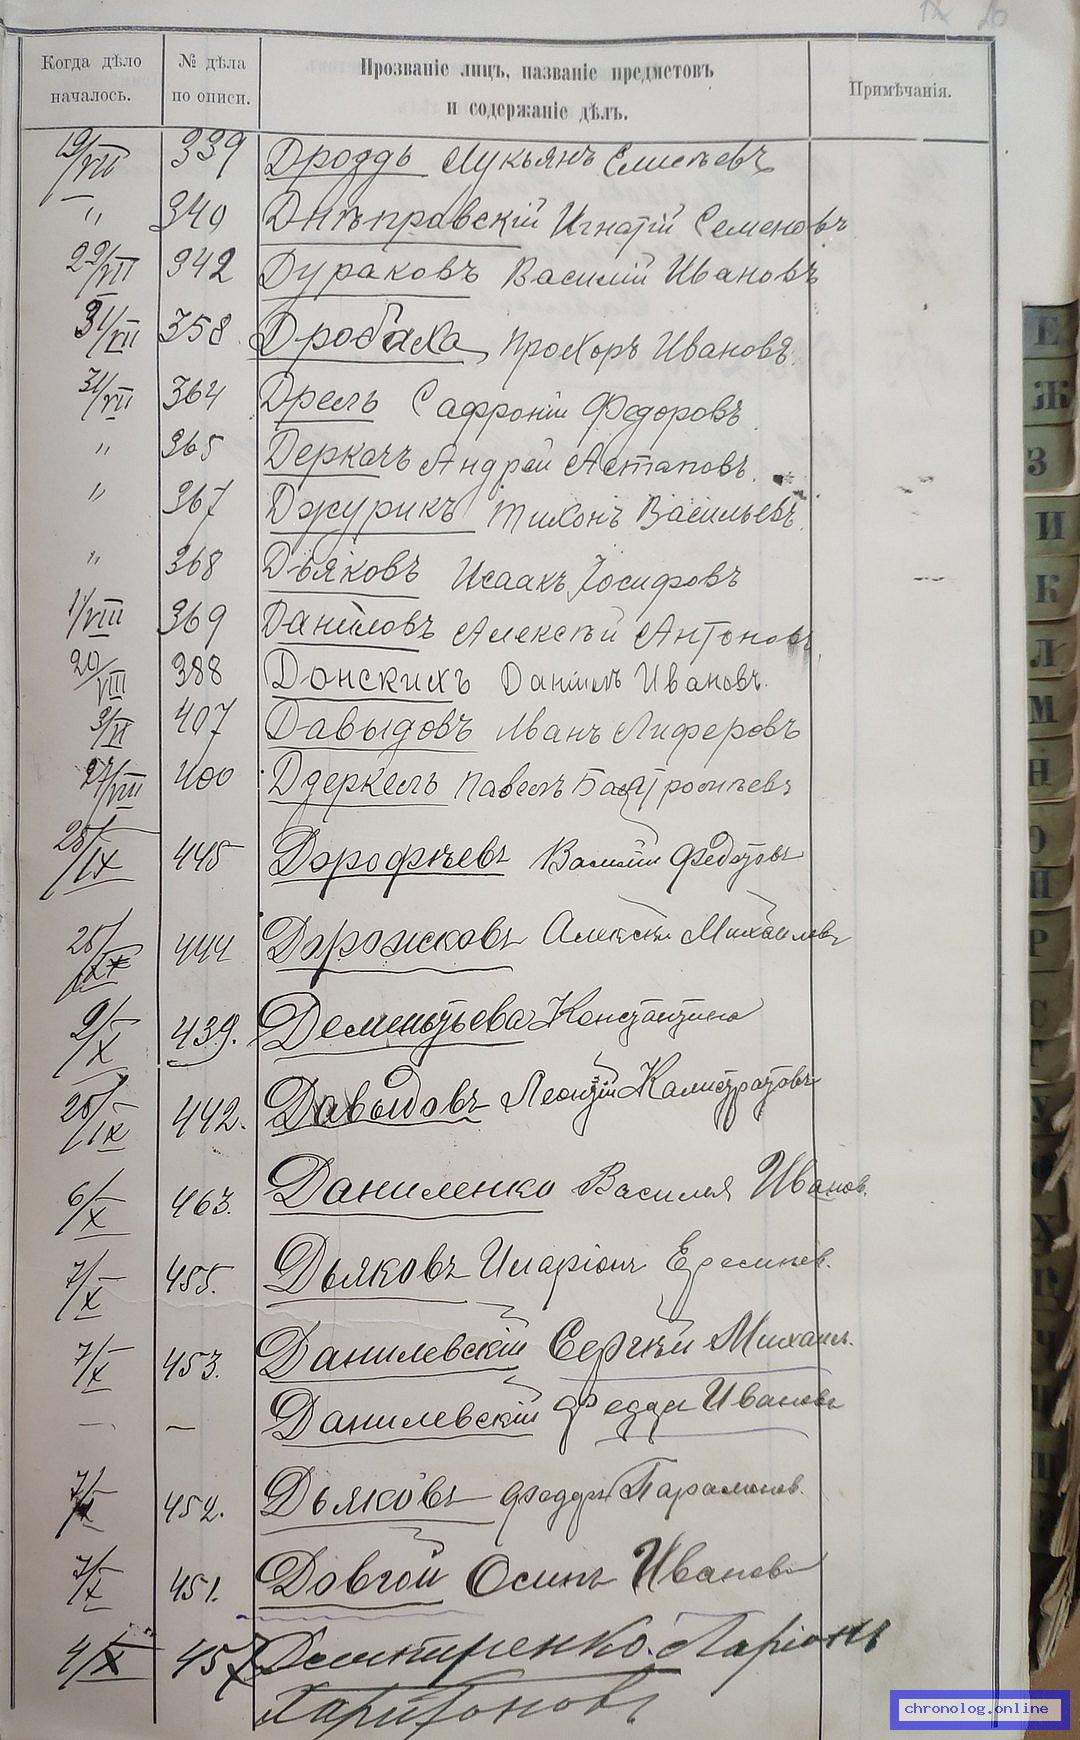 Когда дѣло началось. № дѣла по описи. Прозваніе лицъ, названіе предметовъ и содержаніе дѣлъ. Примѣчанія.
19/VII 339 Дроздъ Лукьянъ Елисѣевъ
" 340 Днѣправскій Игнатій Семеновъ
29/VII 342 Дураковъ Василій Ивановъ
31/VII 358 Дробаха Прохоръ Ивановъ.
31/VII 364 Дрель Сафроній Федоровъ
" 365 Деркачъ Андрей Астаповъ.
" 367 Джурикъ Тихонъ Васильевъ
" 368 Дьяковъ Исаакъ Іосифовъ
1/VIII 369 Даниловъ Алексѣй Антоновъ
20/VIII 388 Донскихъ Даніилъ Ивановъ.
407 Давыдовъ Иванъ Лиферовъ
27/VIII 400 Павелъ
28/IX 445 Дорофѣевъ Василій Федотовъ
444 Дорожковъ Алексѣй Михайловъ
9/X 439. Дементьева Константина
442. Давыдовъ Леонтій Калистратовъ
6/X 463. Даниленко Василія Иванов.
7/X 455. Дьяковъ Иларіонъ
7/X 453. Данилевскій Сергѣй Михаил.
— — Данилевскій Ивановъ
7/X 452. Дьяковъ Федоръ Парамонов.
7/X 451. Довгой Осипъ Ивановъ
4/X 457 Ларіонъ
Харитоновъ
Е
Ж
З
И
К
Л
М
Н
О
П
Р
С
Т
У
Х
chronolog.online